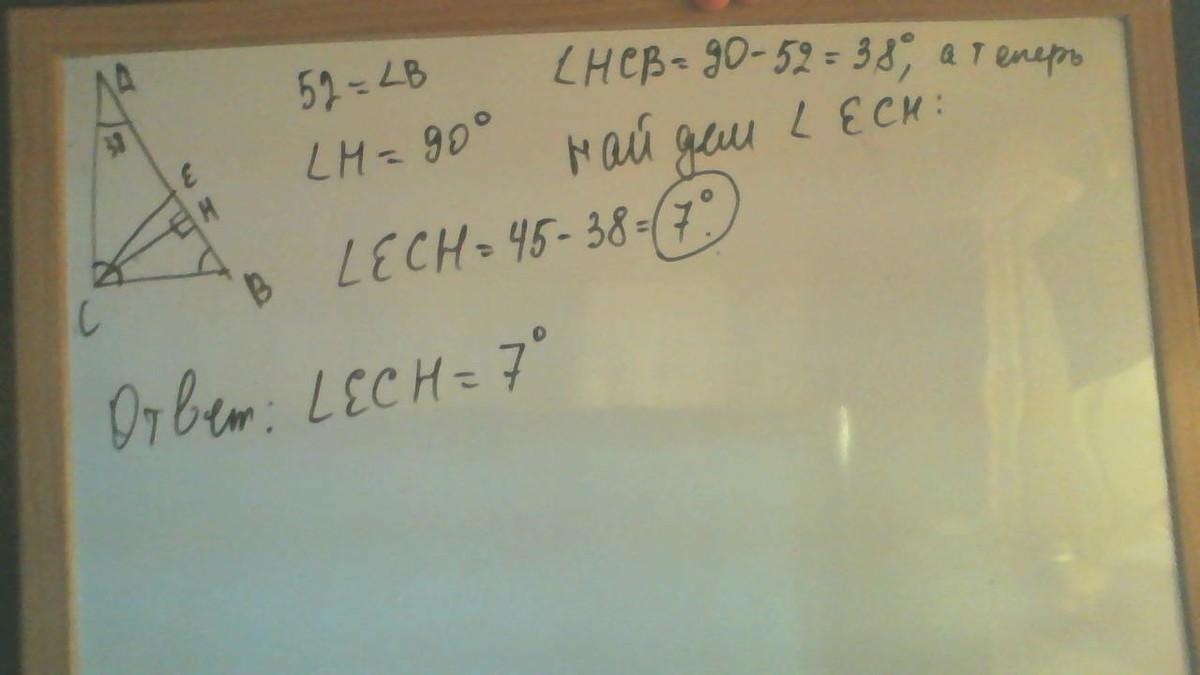 A
E
H
C
B
52 = ∠B
∠H = 90°
∠HCB = 90 - 52 = 38°, а теперь
найдем ∠ECH:
∠ECH = 45 - 38 = 7°.
Ответ: ∠ECH = 7°